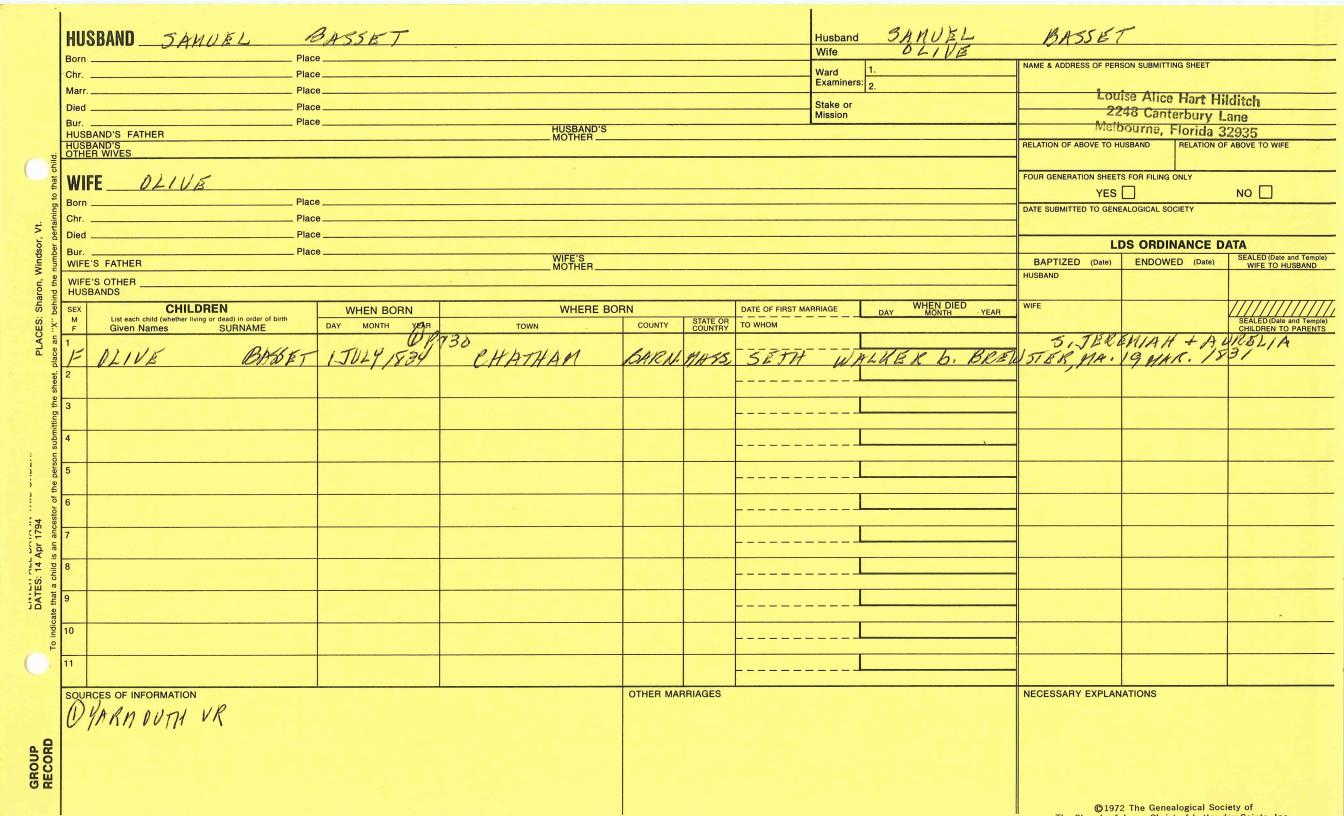 HUSBAND SAMUEL BASSET
Born Place
Chr. Place
Marr. Place
Died Place
Bur. Place
HUSBAND'S FATHER HUSBAND'S MOTHER
HUSBAND'S OTHER WIVES
WIFE OLIVE
Born Place
Chr. Place
Died Place
Bur. Place
WIFE'S FATHER WIFE'S MOTHER
WIFE'S OTHER HUSBANDS
Husband SAMUEL BASSET
Wife OLIVE
Ward Examiners: 1.
2.
Stake or Mission
NAME & ADDRESS OF PERSON SUBMITTING SHEET
Louise Alice Hart Hilditch
2248 Canterbury Lane
Melbourne, Florida 32935
RELATION OF ABOVE TO HUSBAND RELATION OF ABOVE TO WIFE
FOUR GENERATION SHEETS FOR FILING ONLY
YES NO
DATE SUBMITTED TO GENEALOGICAL SOCIETY
LDS ORDINANCE DATA
BAPTIZED (Date) ENDOWED (Date) SEALED (Date and Temple) WIFE TO HUSBAND
HUSBAND
WIFE
SEALED (Date and Temple) CHILDREN TO PARENTS
SEX M F
CHILDREN
List each child (whether living or dead) in order of birth
Given Names SURNAME
WHEN BORN
DAY MONTH YEAR
WHERE BORN
TOWN COUNTY STATE OR COUNTRY
DATE OF FIRST MARRIAGE
TO WHOM
WHEN DIED
DAY MONTH YEAR
1 ① P730 S. JEREMIAH + AURELIA
F OLIVE BASSET 1 JULY 1834 CHATHAM BARN. MASS. SETH WALKER b. BREWSTER, MA. 19 MAR. 1831
2
3
4
5
6
7
8
9
10
11
SOURCES OF INFORMATION
① YARMOUTH VR
OTHER MARRIAGES
NECESSARY EXPLANATIONS
©1972 The Genealogical Society of
PLACES: Sharon, Windsor, Vt.
DATES: 14 Apr 1794
To indicate that a child is an ancestor of the person submitting the sheet, place an "X" behind the number pertaining to that child.
GROUP RECORD